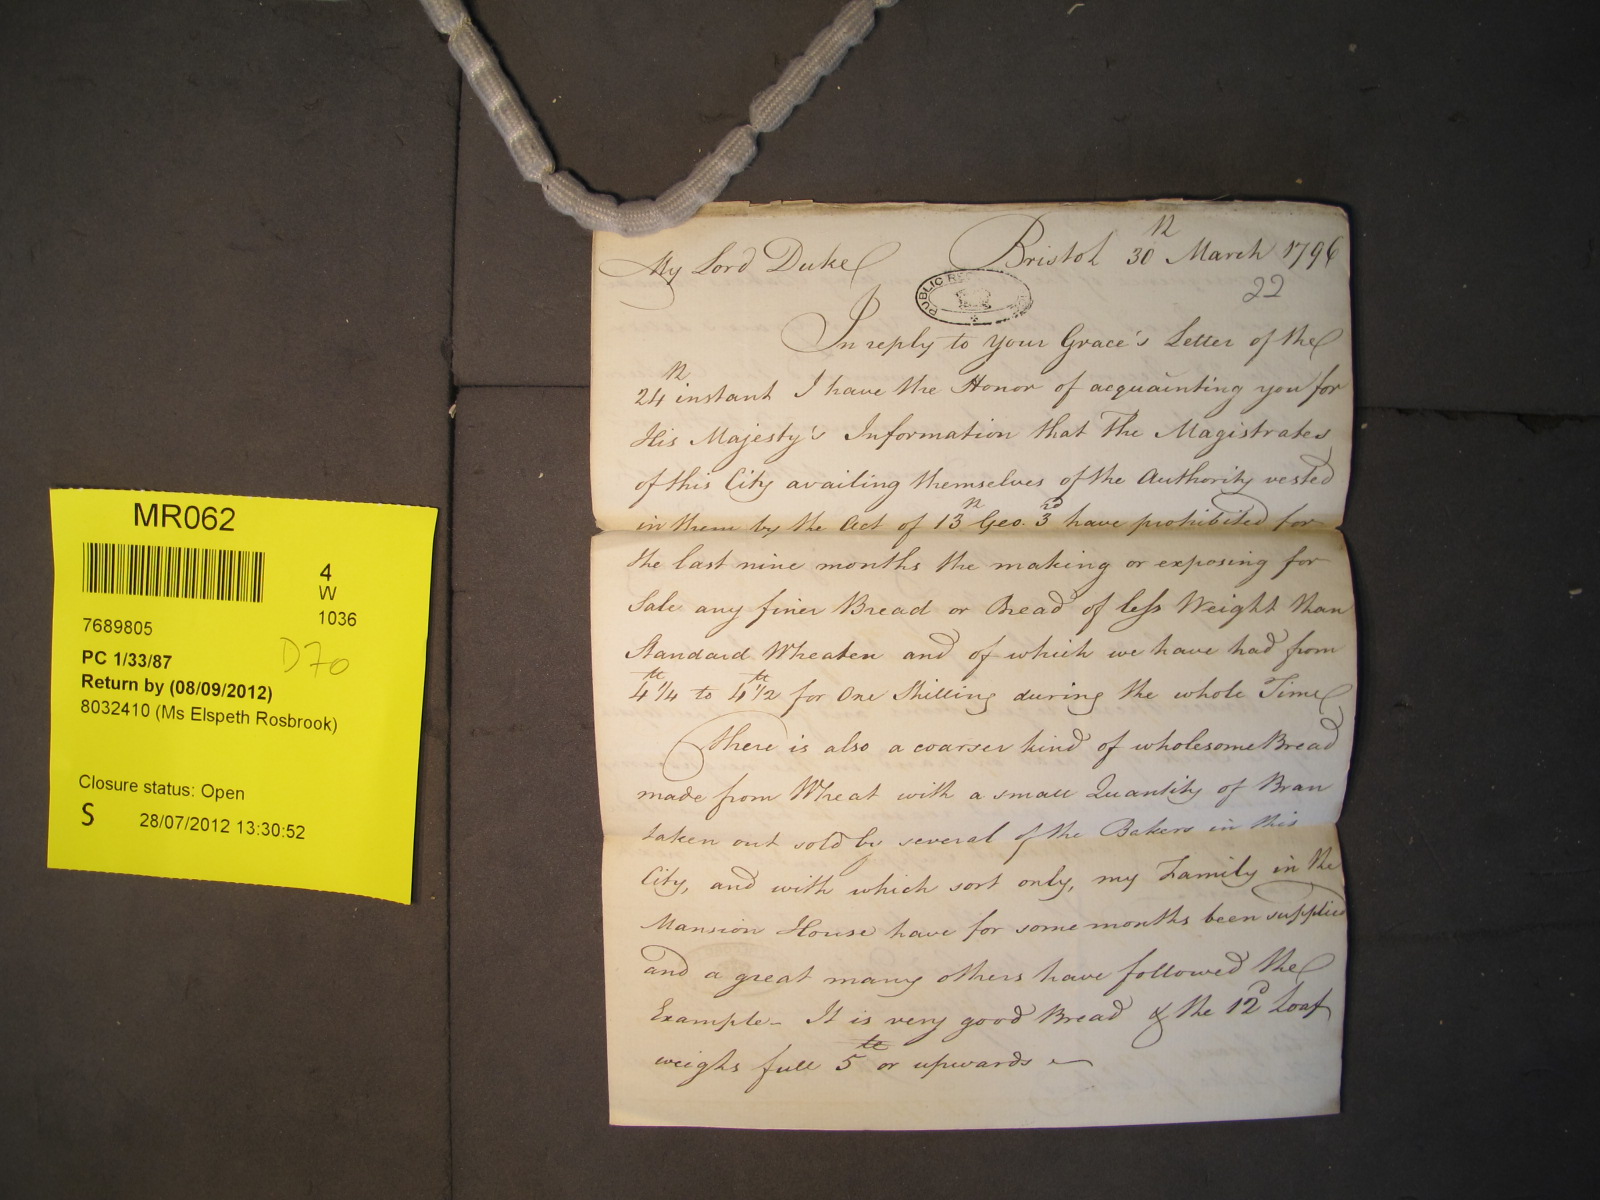 My Lord Duke Bristol 30th March 1796
PUBLIC RE
22
In reply to your Grace's Letter of the
24th instant I have the Honor of acquainting you for
His Majesty's Information that The Magistrates
of this City availing themselves of the Authority vested
in them by the Act of 13th Geo. 3rd have prohibited for
the last nine months the making or exposing for
Sale any finer Bread or Bread of less Weight than
Standard Wheaten and of which we have had from
4lb 1/4 to 4lb 1/2 for One Shilling during the whole Time
There is also a coarser kind of wholesome Bread
made from Wheat with a small Quantity of Bran
taken out sold by several of the Bakers in this
City, and with which sort only, my Family in the
Mansion House have for some months been supplied
and a great many others have followed the
Example – It is very good Bread & the 12d Loaf
weighs full 5lb or upwards –
MR062
4
W
1036
7689805
D70
PC 1/33/87
Return by (08/09/2012)
8032410 (Ms Elspeth Rosbrook)
Closure status: Open
S 28/07/2012 13:30:52